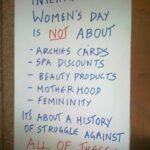 WOMEN'S DAY
IS NOT ABOUT
- ARCHIES CARDS
- SPA DISCOUNTS
- BEAUTY PRODUCTS
- MOTHERHOOD
- FEMININITY
IT'S ABOUT A HISTORY
OF STRUGGLE AGAINST
ALL OF THESE!